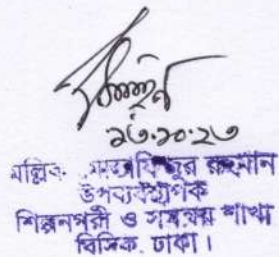 ১৩.১০.২৩
মল্লিক রহমান
উপব্যবস্থাপক
শিল্পনগরী ও সমন্বয় শাখা
বিসিক, ঢাকা।